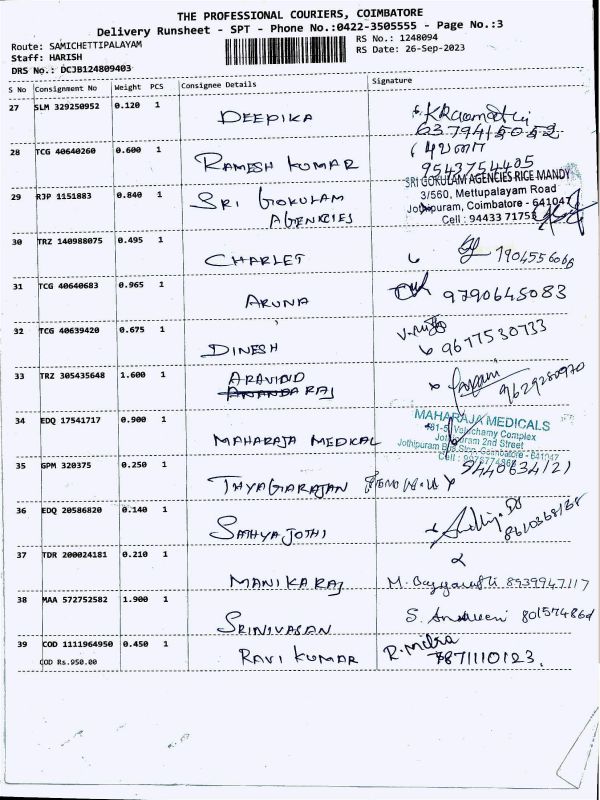 THE PROFESSIONAL COURIERS, COIMBATORE
Delivery Runsheet - SPT - Phone No.:0422-3505555 - Page No.:3
Route: SAMICHETTIPALAYAM RS No.: 1248094
Staff: HARISH RS Date: 26-Sep-2023
DRS No.: DCJB124809403
S No Consignment No Weight PCS Consignee Details Signature
27 SLM 329250952 0.120 1 DEEPIKA
28 TCG 40640260 0.600 1 RAMESH KUMAR 9543754405
29 RJP 1151883 0.840 1 SRI GOKULAM
AGENCIES
SRI GOKULAM AGENCIES RICE MANDY
3/560, Mettupalayam Road
Jothipuram, Coimbatore - 641047
Cell : 94433 71753
30 TRZ 140988075 0.495 1 CHARLET
31 TCG 40640683 0.965 1 ARUNA 9790645083
32 TCG 40639420 0.675 1 DINESH 9677530733
33 TRZ 305435648 1.600 1 ARAVIND
RAJ 9629280970
34 EDQ 17541717 0.900 1 MAHARAJA MEDICAL
MAHARAJA MEDICALS
Complex
2nd Street
Jothipuram Bus Stop, Coimbatore - 641047
35 GPM 320375 0.250 1 THYAGARAJAN 9440634121
36 EDQ 20586820 0.140 1 SATHYA JOTHI
37 TDR 200024181 0.210 1 MANIKARAJ M. 8939947117
38 MAA 572752582 1.900 1 SRINIVASAN S.
39 COD 1111964950 0.450 1 RAVI KUMAR R. Mitra
COD Rs.950.00 7871110123.